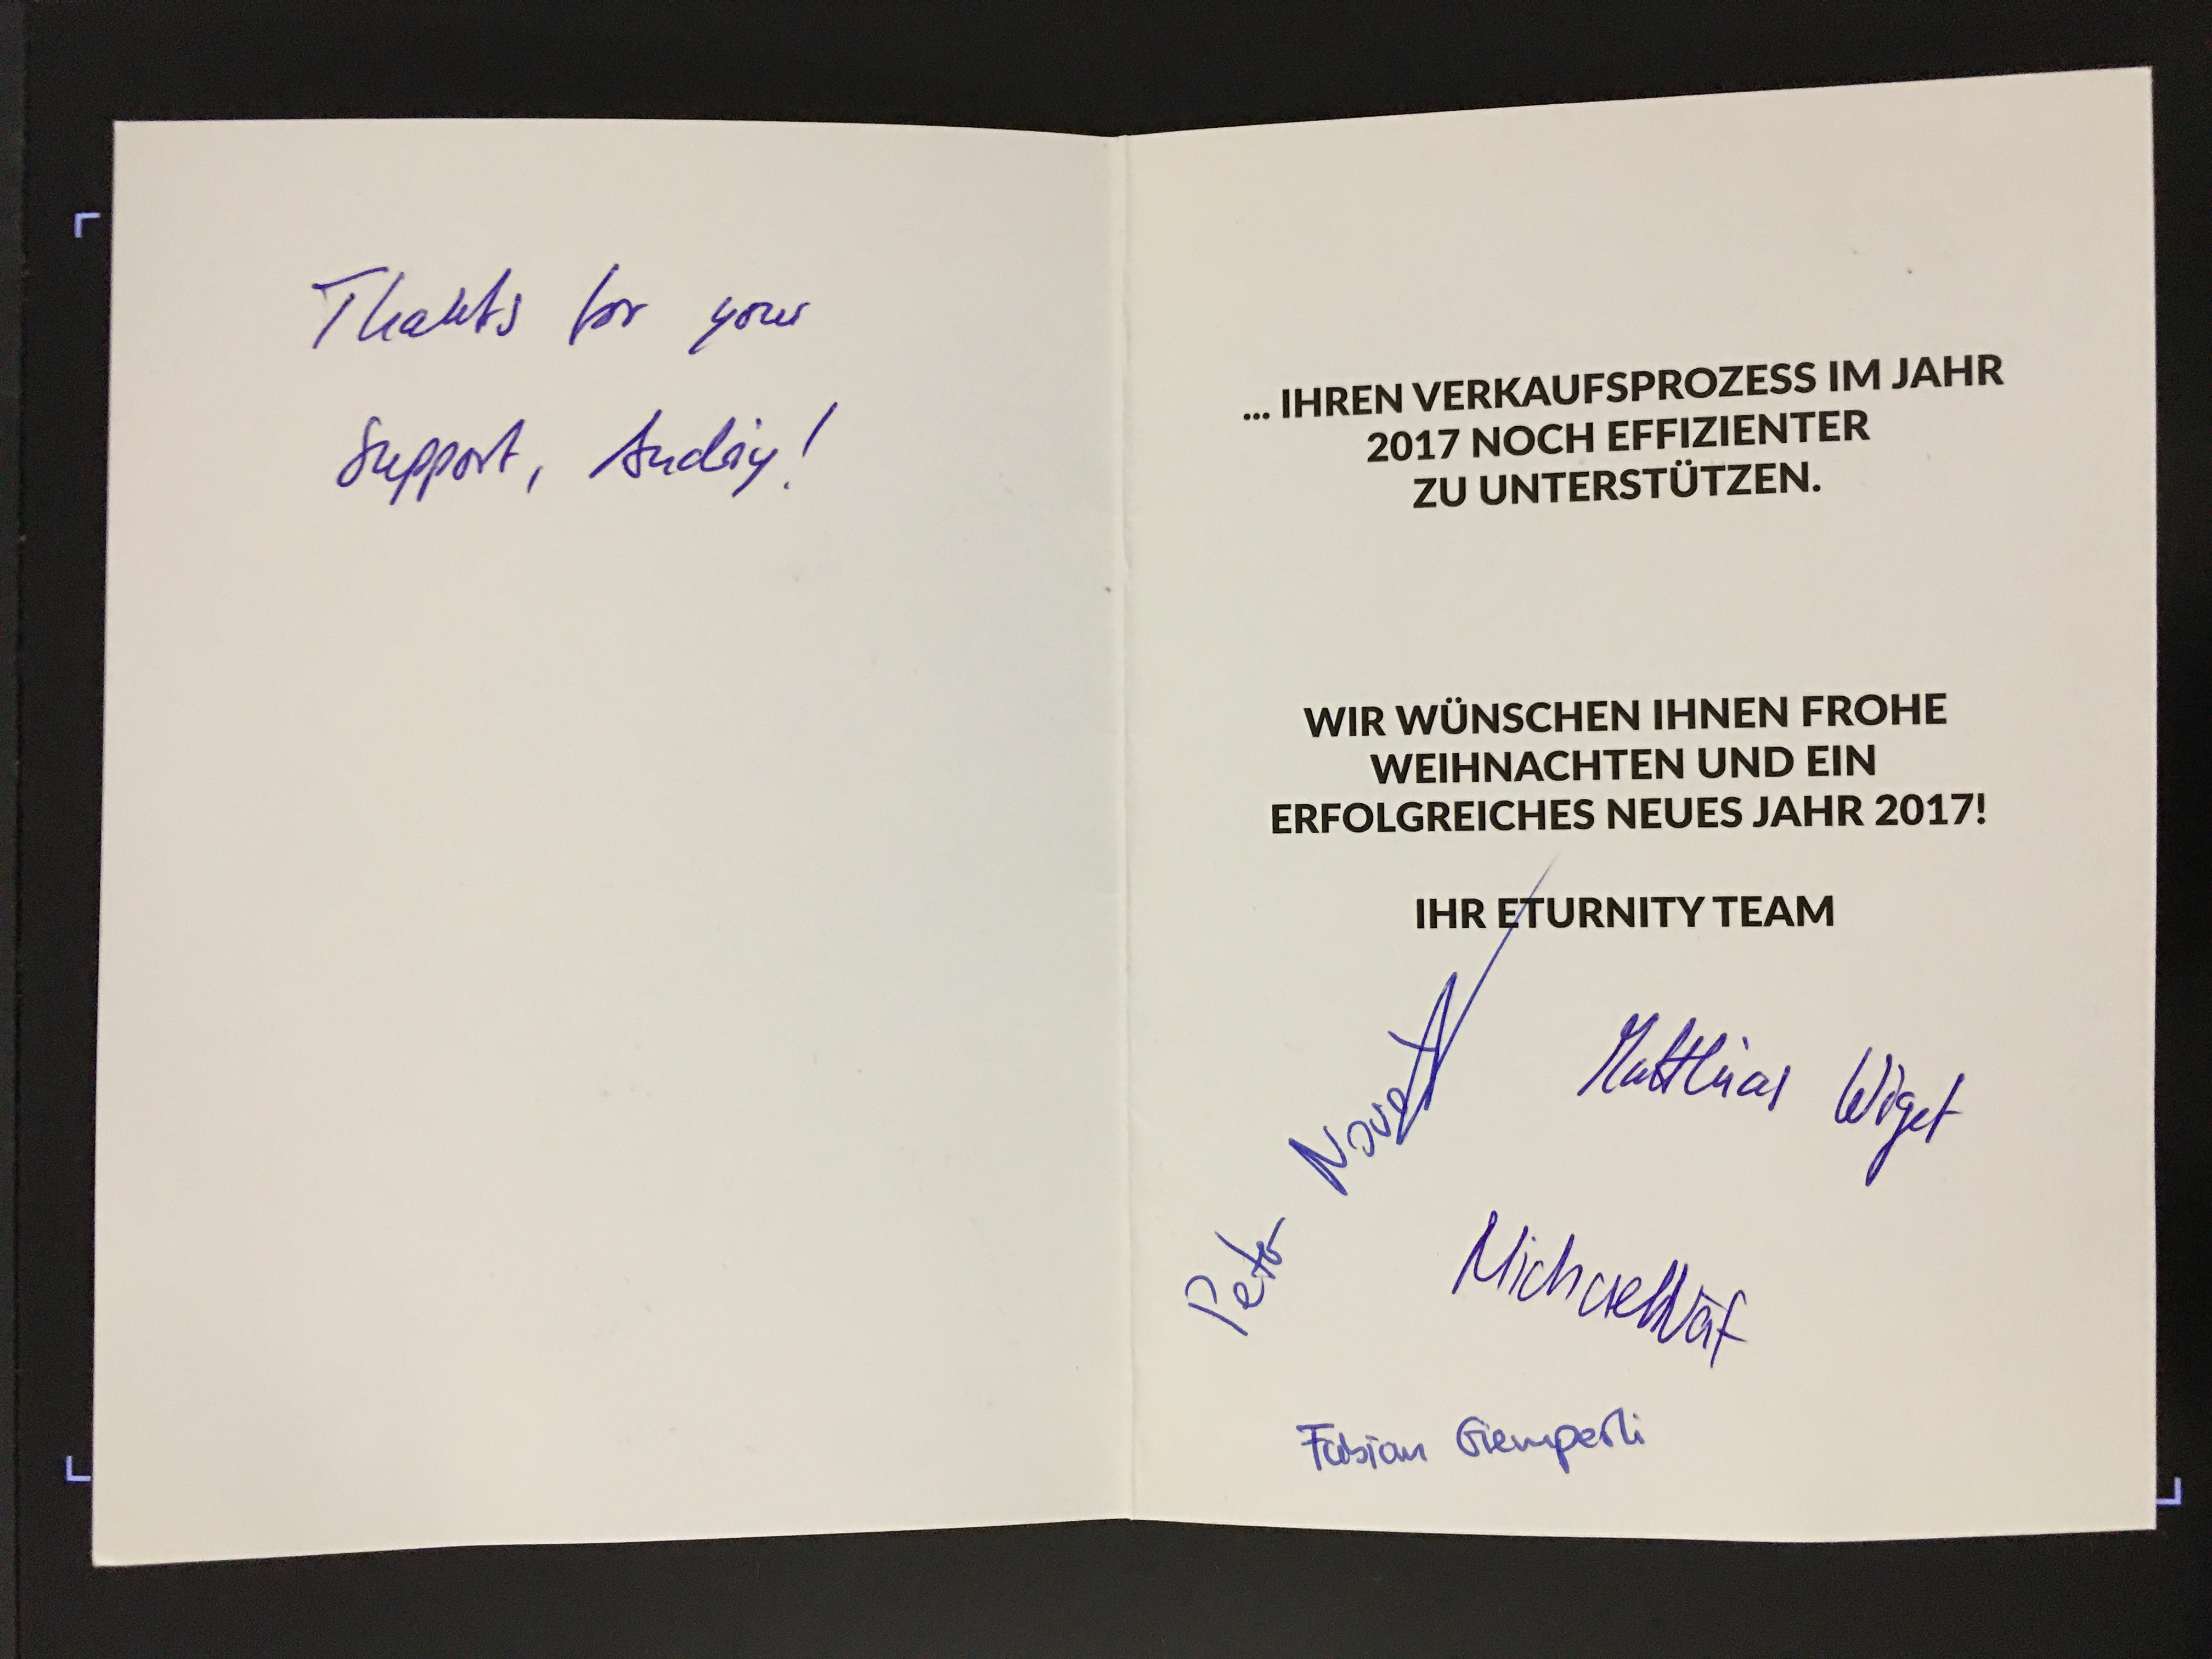 Thanks for your
Support, Andriy!
... IHREN VERKAUFSPROZESS IM JAHR
2017 NOCH EFFIZIENTER
ZU UNTERSTÜTZEN.
WIR WÜNSCHEN IHNEN FROHE
WEIHNACHTEN UND EIN
ERFOLGREICHES NEUES JAHR 2017!
IHR ETURNITY TEAM
Matthias Wiget
Peter
Michael Näf
Fabian